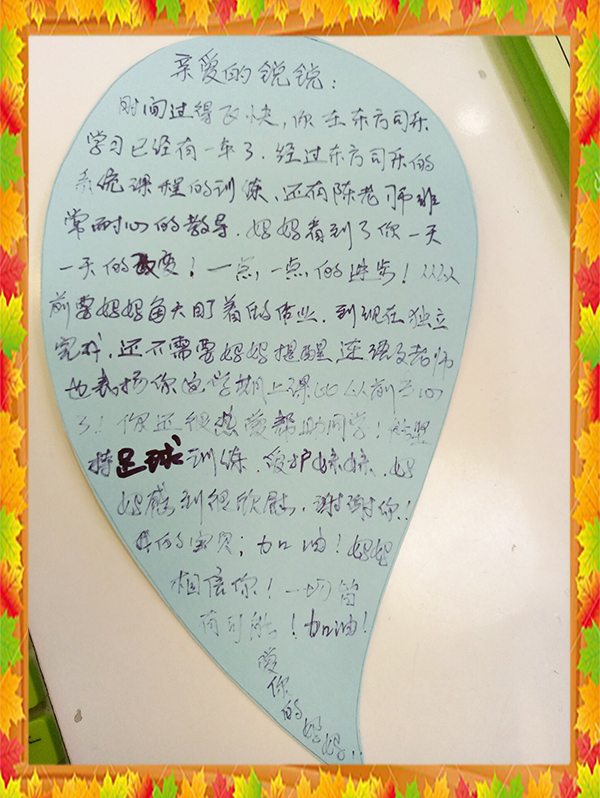 亲爱的锐锐：
时间过得飞快，你在东方司乐
学习已经有一年了．经过东方司乐的
系统课程的训练，还有陈老师非
常耐心的教导．妈妈看到了你一天
一天的改变！一点，一点的进步！从以
前要妈妈角大盯着的作业．到现在独立
完成，还不需要妈妈提醒．连语文老师
也表扬你这学期上课比以前专心
了！你还很热爱帮助同学！能坚
持足球训练．爱护妹妹．妈
妈感到很欣慰，谢谢你！
的宝贝；加油！妈妈
相信你！一切皆
有可能！加油！
爱你的妈妈．